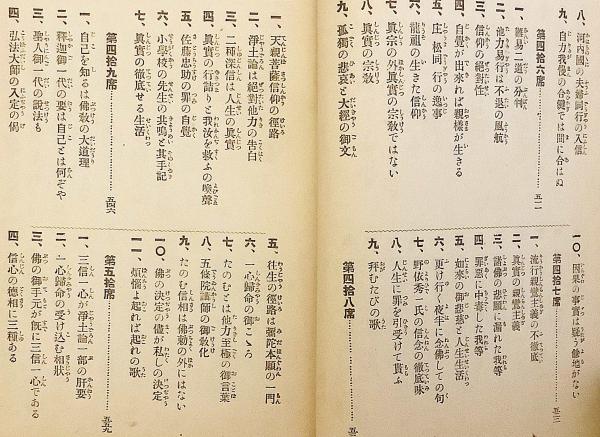 八、河內國の夫婦同行の入信
九、自力我慢の合鍵では間に合はぬ
第四拾六席…………五二一
一、難易二道の分判
二、他力易行は不退の風航
三、信仰の絕對性
四、自覺が出來れば親樣が生きる
五、庄松同行の逸事
六、龍祖の生きた信仰
七、眞宗の外眞實の宗敎ではない
八、眞實の宗敎
九、孤獨の悲哀と大經の御文
一〇、因果の事實は疑う餘地がない
第四拾七席…………五三三
一、流行親鸞主義の不徹底
二、眞實の親鸞主義
三、諸佛の悲願に漏れた我等
四、罪惡に中毒した我等
五、如來の御慈悲と人生生活
六、更け行く夜半に念佛しての句
七、野依秀一氏の信念の徹底味
八、人生に罪を引受けて貰ふ
九、拜むたびの歌
第四拾八席
一、天親菩薩信仰の徑路
二、淨土論は絕對他力の告白
三、二種深信は人生の眞實
四、眞實の行詰りと我汝を救ふの喚聲
五、佐藤忠助の罪の自覺
六、小學校の先生の共鳴と其手記
七、眞實の徹底せる生活
第四拾九席…………五四六
一、自己を知るは佛敎の大道理
二、釋迦御一代の要は自己とは何ぞや
三、聖人御一代の說法も
四、弘法大師の入定の偈
五、往生の徑路は彌陀本願の一門
六、一心歸命の御こゝろ
七、たのむとは他力至極の御言葉
八、五條院講師の御敎化
九、たのむ信相は佛勅の外にはない
一〇、佛の決定の儘が私しの決定
一一、煩惱よ起れば起れの歌
第五拾席…………五五九
一、三信一心が淨土論一部の肝要
二、一心歸命の受け込む相狀
三、佛の御手元が旣に三信一心である
四、信心の德相に三種ある